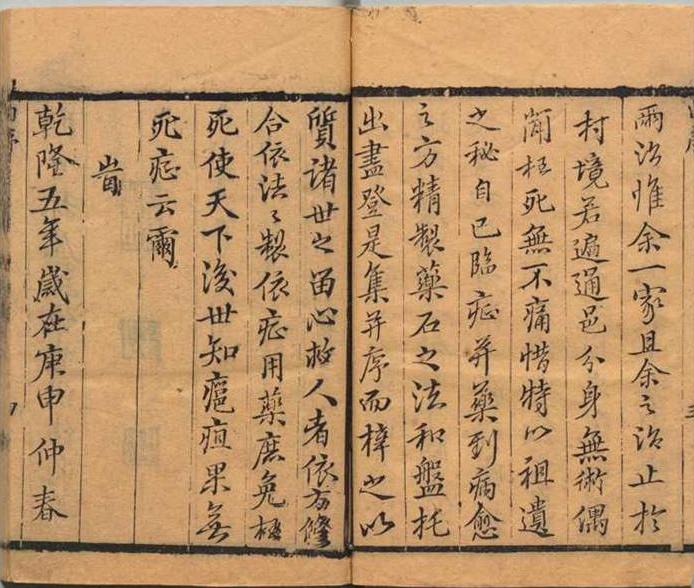 爾治惟余一家且余之治止於
村境若遍通邑分身無術偶
聞枉死無不痛惜特以祖遺
之秘自己臨症并藥到病愈
之方精製藥石之法和盤托
出盡登是集并序而梓之以
質諸世之留心救人者依方修
合依法々製依症用藥庶免枉
死使天下後世知瘟疽果無
死症云爾
旹
乾隆五年歲在庚申仲春